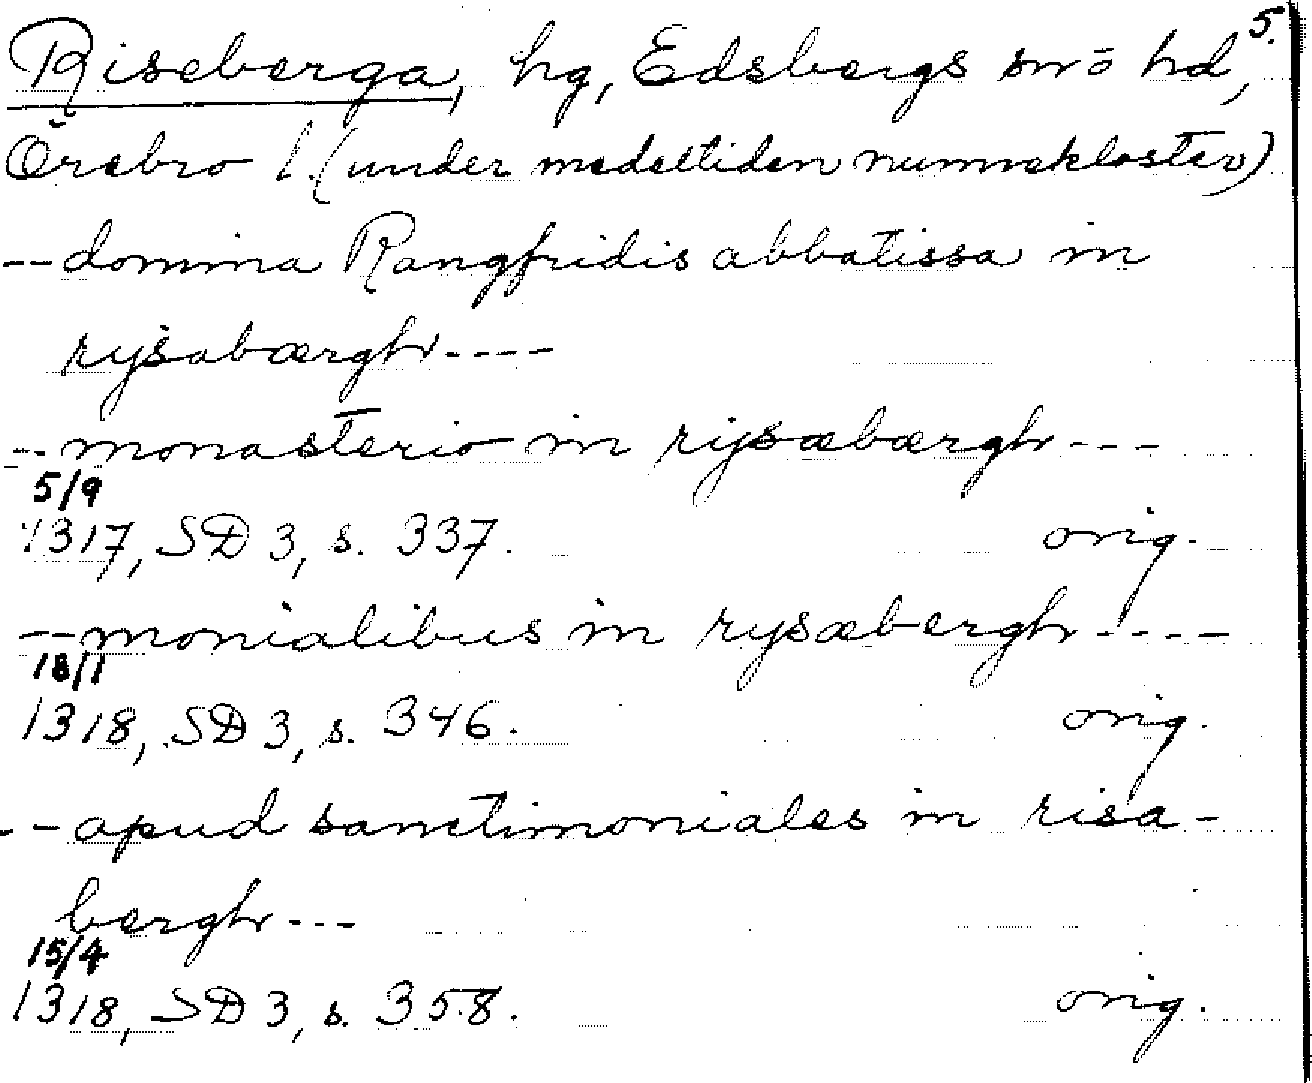 5.
Riseberga, hg, Edsbergs snö hd,
Örebro l. (under medeltiden nunnekloster)
-- domina Rangfridis abbatissa in
rysabærgh ----
-- monasterio in rysæbærgh ---
5/9
1317, SD 3, s. 337. orig.
-- monialibus in rysæbergh ----
18/1
1318, SD 3, s. 346. orig.
-- apud sanctimoniales in risa-
bergh ---
15/4
1318, SD 3, s. 358. orig.